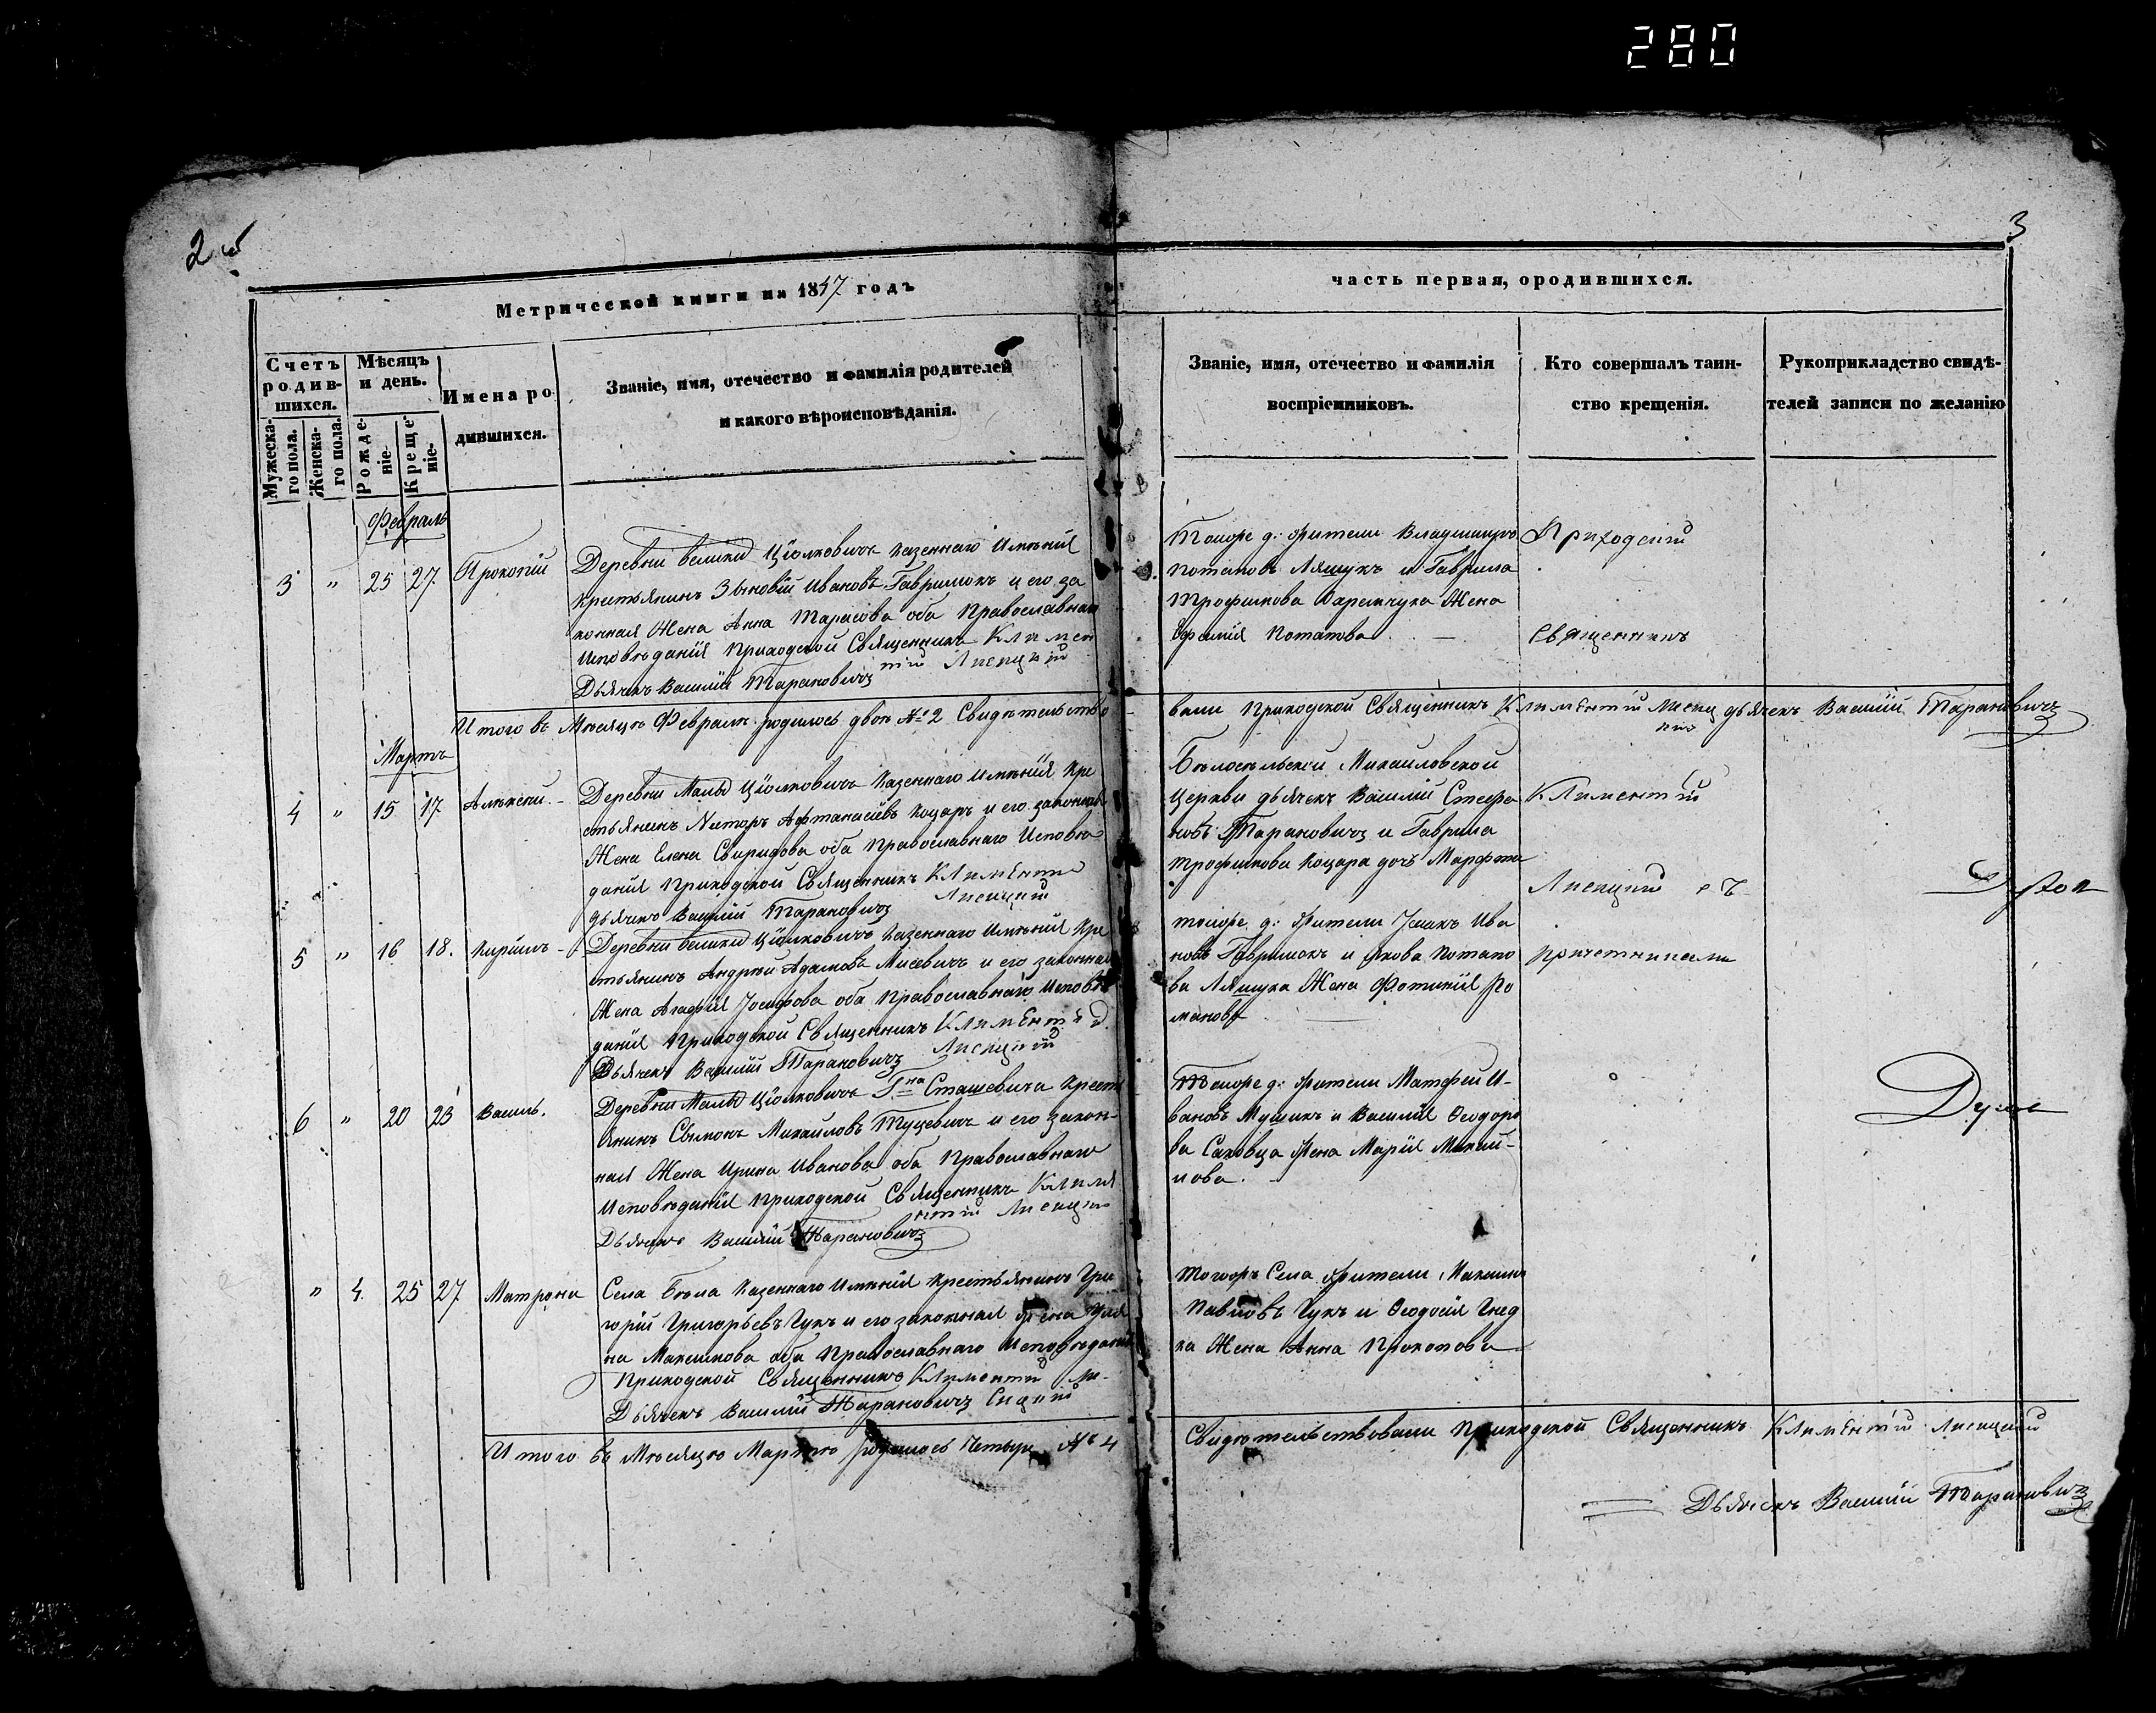 280
2 об
3
Метрической книги на 1857 годъ
часть первая, ородившихся.
Счетъ родив-
шихся.
Мужеска-
го пола.
Женска-
го пола.
Мѣсяцъ
и день.
Рожде-
ніе-
Креще-
ніе-
Имена ро
дившихся.
Званіе, имя, отечество и фамилія родителей
и какого вѣроисповѣданія.
Званіе, имя, отечество и фамилія
воспріемниковъ.
Кто совершалъ таин-
ство крещенія.
Рукоприкладство свидѣ-
телей записи по желанію
Февраль
3 " 25 27. Прокопій
Деревни Велики Ціолковичъ Казеннаго Имѣнія
Крестьянинъ Зѣновій Ивановъ Гаврилюкъ и его за
конная Жена Анна Тарасова оба Православнаго
Исповѣданія Приходской Священникъ Климен
тій Лисицкій
Дьячекъ Василій Тарановичъ
Тойоре д: Жители Владимиръ
Потаповъ Ляшукъ и Гаврила
Трофимова Жена
Потапова
Приходскій
Священникъ
Итого въ Мѣсяцѣ Февралѣ родилось двое № 2 Свидѣтельство
вали Приходской Священникъ Климентій Лисиц
кій
дьячекъ Василій Тарановичъ
Мартъ
4 " 15 17 Алѣксѣй. -
Деревни Малы Ціолковичъ Казеннаго Имѣнія Кре
стьянинъ Афтанасіевъ Коцаръ и его законная
Жена Елена Свиридова оба Православнаго Исповѣ
данія Приходской Священникъ Климентій
Лисицкій
дьячекъ Василій Тарановичъ
Бѣлосѣльской Михайловской
Церкви дьячекъ Василій Стефа
новъ Тарановичъ и Гаврила
Трофимова Коцара дочь Марфта
Климентій
Лисицкій съ
5 " 16 18. Кирилъ -
Деревни Велики Ціолковичъ Казеннаго Имѣнія Кре
стьянинъ Андрей Адамовъ Мисевичъ и его законная
Жена Агафія Іосифова оба Православнаго Исповѣ
данія Приходской Священникъ Климентій
Лисицкій
Дьячекъ Василій Тарановичъ
тойоре д: Жители Ива
новъ Гаврилюкъ и Якова Потапо
ва Ляшука Жена Фотинія Ро
манова
причетниками
6 " 20 23 Василь.
Деревни Малы Ціолковичъ Г.на Сташевича Крест
янинъ Сѣмонъ Михайловъ Туцевичъ и его закон-
ная Жена Ирина Иванова оба Православнаго
Исповѣданія Приходской Священникъ Климе
нтій Лисицкій
Дьячекъ Василій Тарановичъ
Тойоре д: Жители Матфей И-
вановъ и Василія Ѳеодоро
ва Саковца Жена Марія Михай-
лова.
" 4. 25 27 Матрона
Села Бѣла Казеннаго Имѣнія Крестьянинъ Гри
горій Григорьевъ Гукъ и его законная Жена
на Максимова оба Православнаго Исповѣданія
Приходской Священникъ Климентій Ли-
Дьячекъ Василій Тарановичъ сицкій
Тогожъ Села Жители Максимъ
Павловъ Гукъ и Ѳеодосія Гнед
ка Жена Анна Прокопова
Итого въ Мѣсяцѣ Мартѣ родилось Четыре № 4
Свидѣтельствовали Приходской Священникъ Климентій Лисицкій
Дьячекъ Василій Тарановичъ